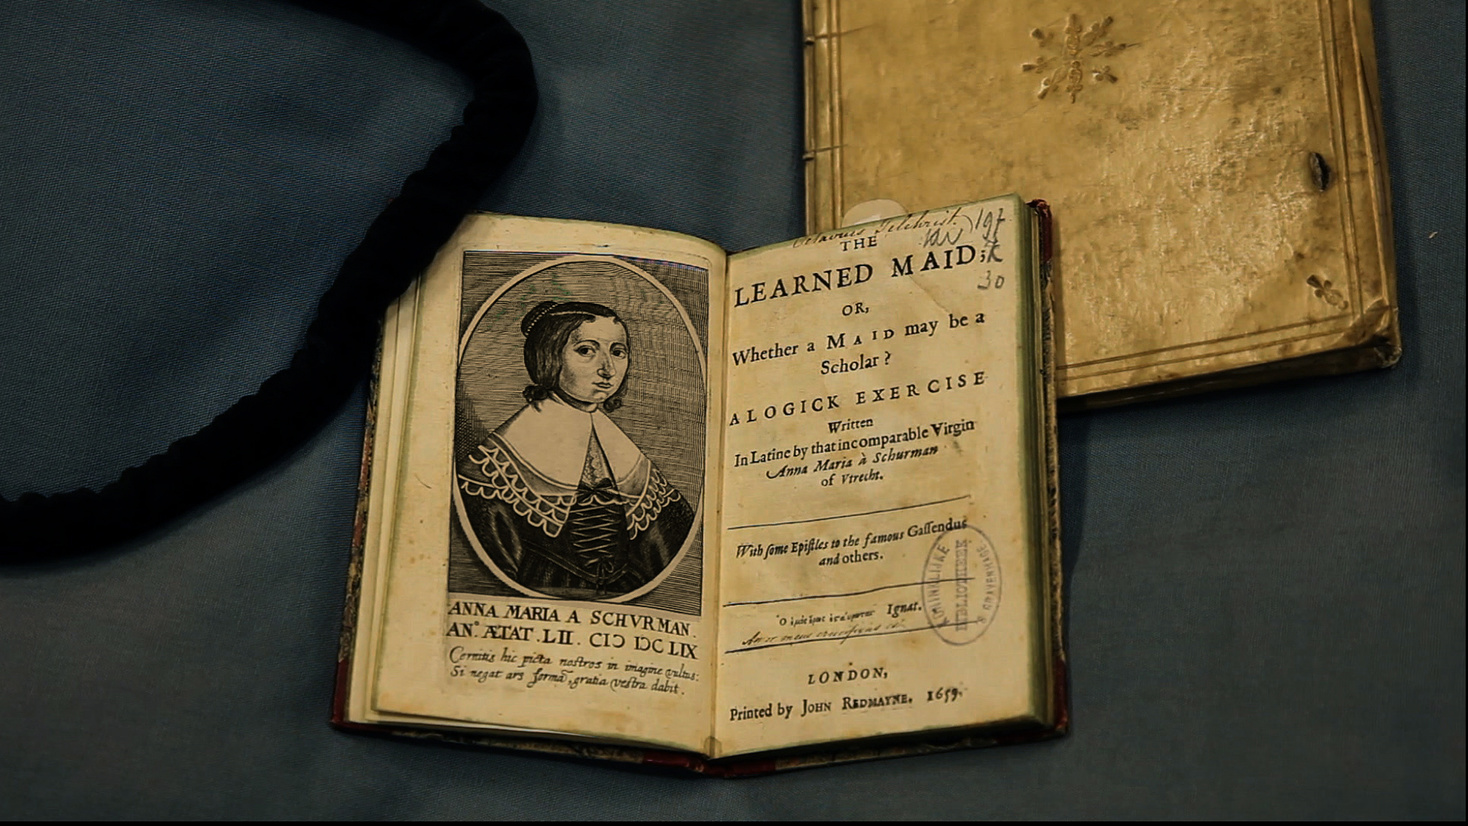 ANNA MARIA A SCHVRMAN.
AN° ÆTAT. LII. CIↃ IↃC LIX
Cernitis hic picta nostros in imagine vultus:
Si negat ars formã, gratia vestra dabit.
Octavius Gilchrist.
197
K
30
THE
LEARNED MAID;
OR,
Whether a MAID may be a
Scholar?
A LOGICK EXERCISE
Written
In Latine by that incomparable Virgin
Anna Maria à Schurman
of Vtrecht.
With ſome Epiſtles to the famous Gaſſendus
and others.
Ignat.
Amor meus crucifixus est
LONDON,
Printed by JOHN REDMAYNE, 1659.
KONINKLIJKE
BIBLIOTHEEK